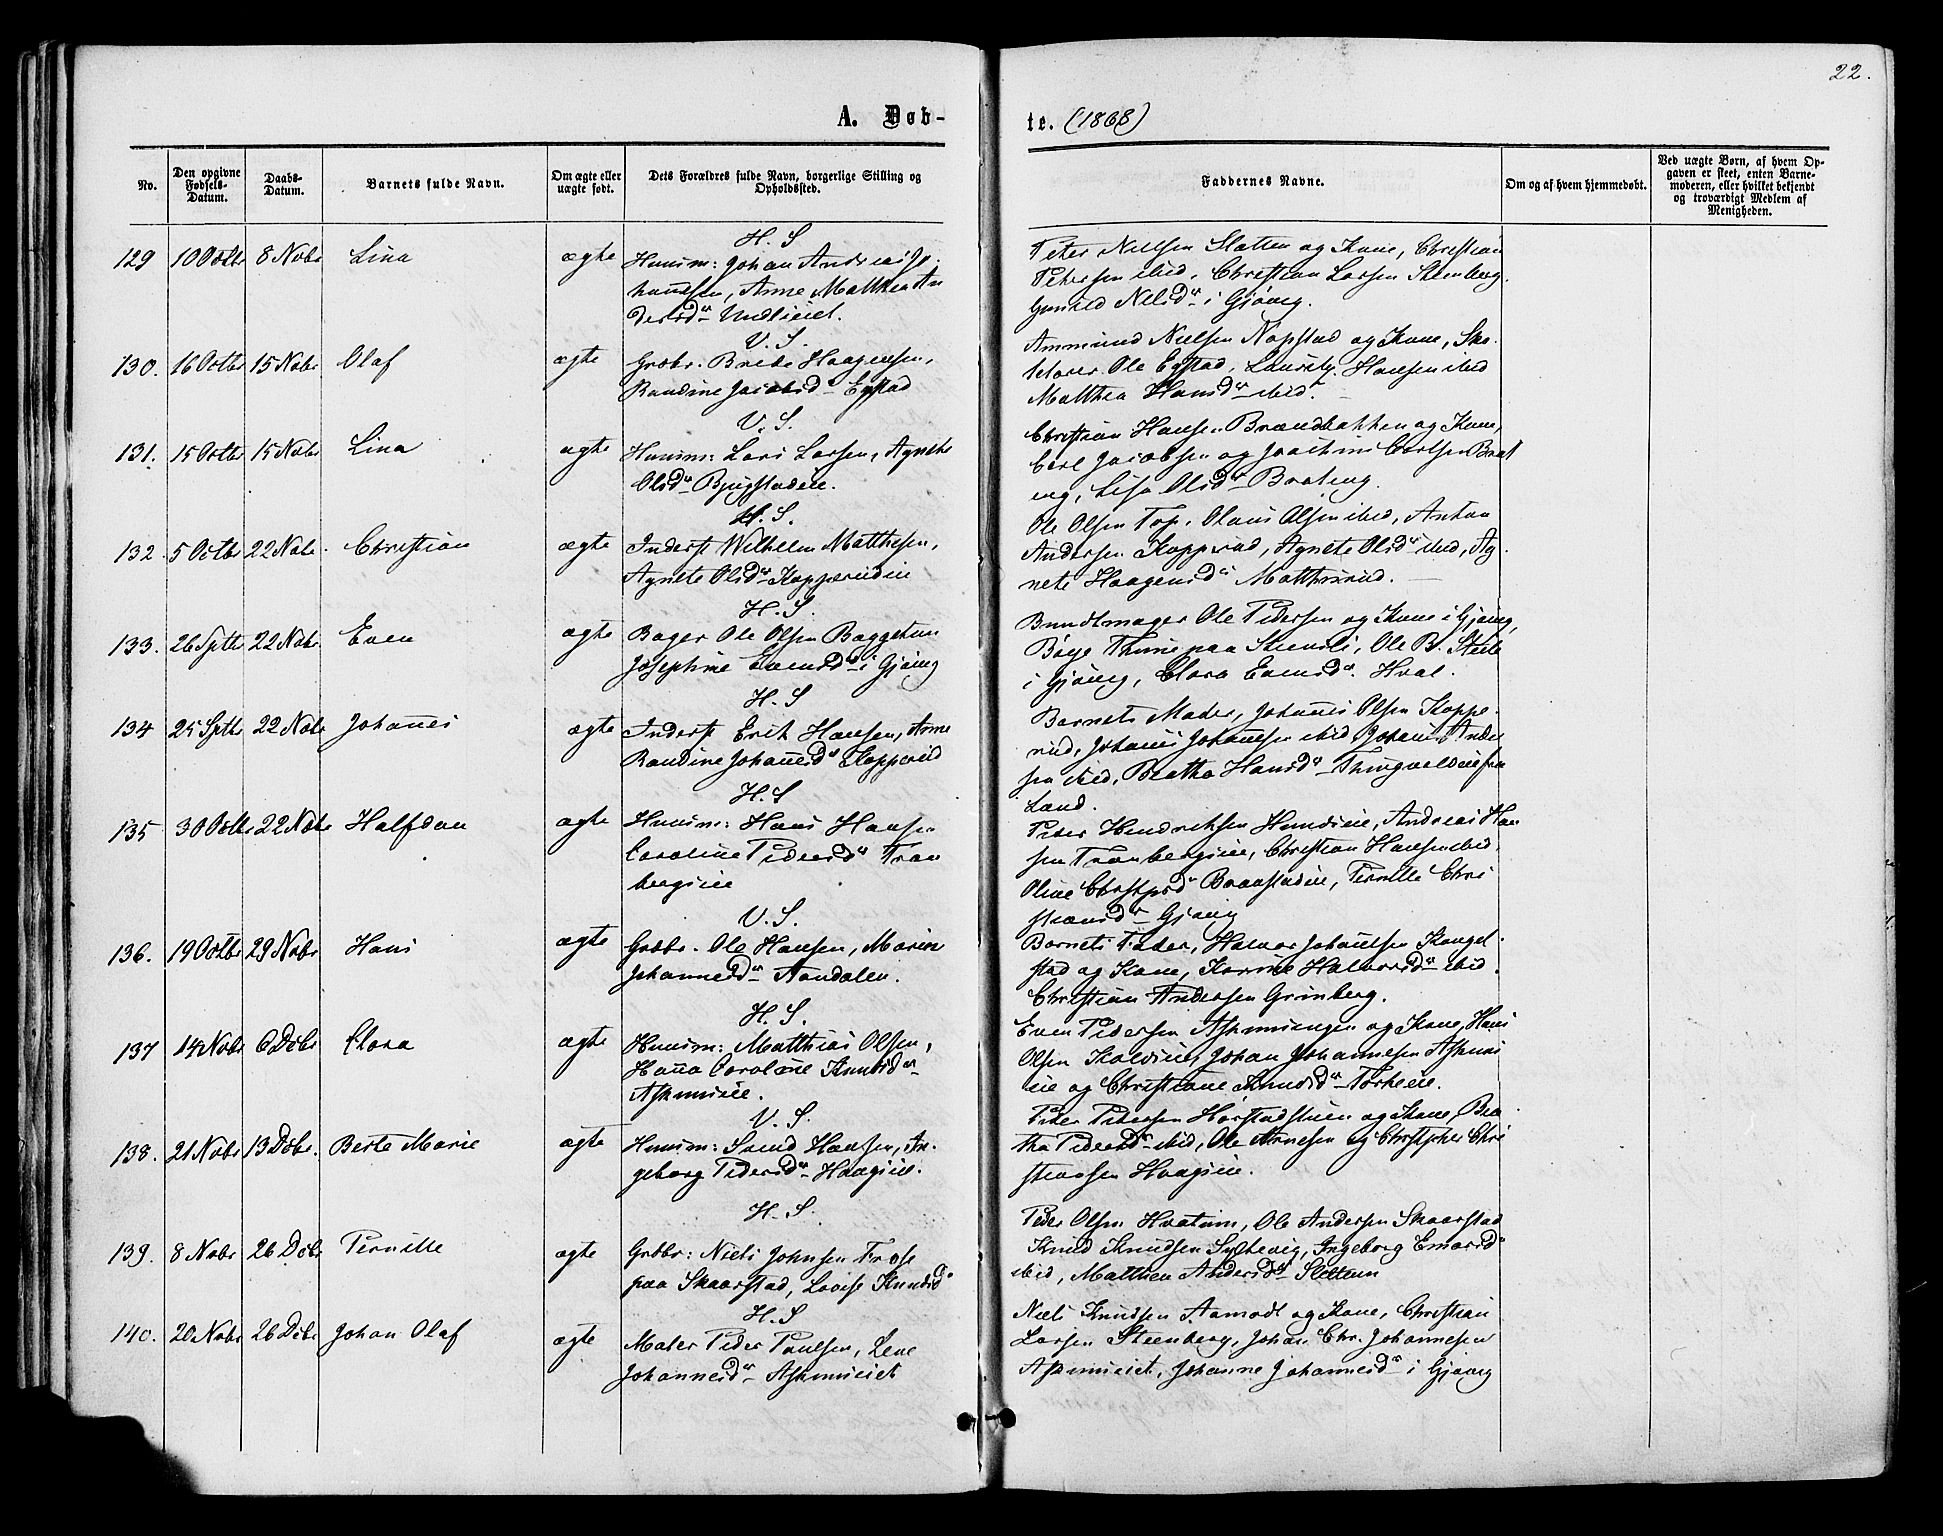 22.
A. Døb-
te. (1868)
No.
Den opgivne Fødsels-Datum.
Daabs-Datum.
Barnets fulde Navn.
Om ægte eller uægte født.
Dets Forældres fulde Navn, borgerlige Stilling og Opholdssted.
Faddernes Navne.
Om og af hvem hjemmedøbt.
Ved uægte Børn, af hvem Opgaven er skeet, enten Barnemoderen, eller hvilket bekjendt og troværdigt Medlem af Menigheden.
129 10 Octbr 8 Nobr Lina ægte
H. S
Huusm: Johan Andreas Jo-
hannsen, Anne Mathea An
dersdr
Peter Nielsen Slatten og Kone, Christian
Petersen ibid, Christian Larsen Stenberg
Gunild Nilsdr i Gjøvig.
130. 16 Octbr 15 Nobr Olaf ægte
V. S.
Grdbr. Brede Haagensen,
Randine Jacobsd Egstad
Ammund Nielsen Nopstad og Kone, Sko-
Ole Egstad, Lauritz Hansen ibid
Matthea Hansdr ibid.
131. 15 Octbr 15 Nobr Lina ægte
V. S.
Huusm: Lars Larsen, Agnethe
Olsdr Bjugstadeie.
Christian Hansen Brændbakken og Kone,
Carl Jacobsen og Joachim Carlsen Braat
eng, Lisa Olsdr Brateng.
132. 5 Octbr 22 Nobr. Christian ægte
H. S.
Inderst Wilhelm Matthesen,
Agnete Olsdr Kopperudeie
Ole Olsen Top, Olaus Olsen ibid, Anton
Andersen Kopperud, Agnete Olsdr ibid, Ag-
nete Haagensdr Matthisrud.
133. 26 Sptbr 22 Nobr. Even ægte
H. S.
Bager Ole Olsen Baggetun
Josephine Evensdr i Gjøvig
Bundtmager Ole Pedersen og Kone i Gjøvig,
Børge Thune paa Steensli, Ole B. Steile
i Gjøvig, Clara Evensdr. Hval.
134 25 Sptbr 22 Nobr Johanes ægte
H. S
Inderst Erik Hansen, Anne
Randine Johanesdr Kopperud
Barnets Moder, Johanes Olsen Koppe-
rud, Johanes Johannesen ibid, Johan Ander
sen ibid, Beatha Hansdr fra
Land.
135 30 Octbr 22 Nobr Halfdan ægte
H. S
Huusm: Hans Hansen
Caroline Pedersdr Tran
bergseie
Peder Hendriksen Hundseie, Andreas Han
sen Tranbergseie, Christian Hansen ibid,
Oline Braastadeie, Pernille Chri
stiansdr Gjøvig
136. 19 Octbr 29 Nobr Hans ægte
V. S.
Grdbr. Ole Hansen, Marie
Johannesdr Aandalen.
Barnets Fader, Halvor Johannesen Kongel-
stad og Kone, Karine Halvorsdr ibid.
Christian Andersen Grinberg.
137 14 Nobr 6 Debr Clara ægte
H. S.
Huusm: Matthias Olsen,
Hanna Caroline Knudsdr
Askimseie.
Even Pedersen og Kone, Hans
Olsen Johan Johannesen
eie og Christiane
138. 21 Nobr 13 Debr. Berte Marie ægte
V. S.
Huusm: Svend Hansen, In-
geborg Pedersdr Haagseie.
Peter Pedersen Hørstadstuen og Kone, Bea
tha Pedersdr ibid, Ole Arnesen og Christopher Chri
stiansen Haagseie.
139. 8 Nobr 26 Debr Pernille ægte
H. S.
Grdbr: Niels Johnsen
paa Skaarstad, Lovise Knudsdr
Peder Olsen Hvatum, Ole Andersen Skaarstad
Knud Knudsen Sylhevig, Ingeborg
ibid, Mathea Andersdr Slettum
140. 20 Nobr 26 Debr Johan Olaf ægte
H. S
Maler Peder Paulsen, Lene
Johannesdr
Niels Knudsen Aamodt og Kone, Christian
Larsen Steenberg, Johan Chr. Johannesen
Johanne Johannesdr i Gjøvig